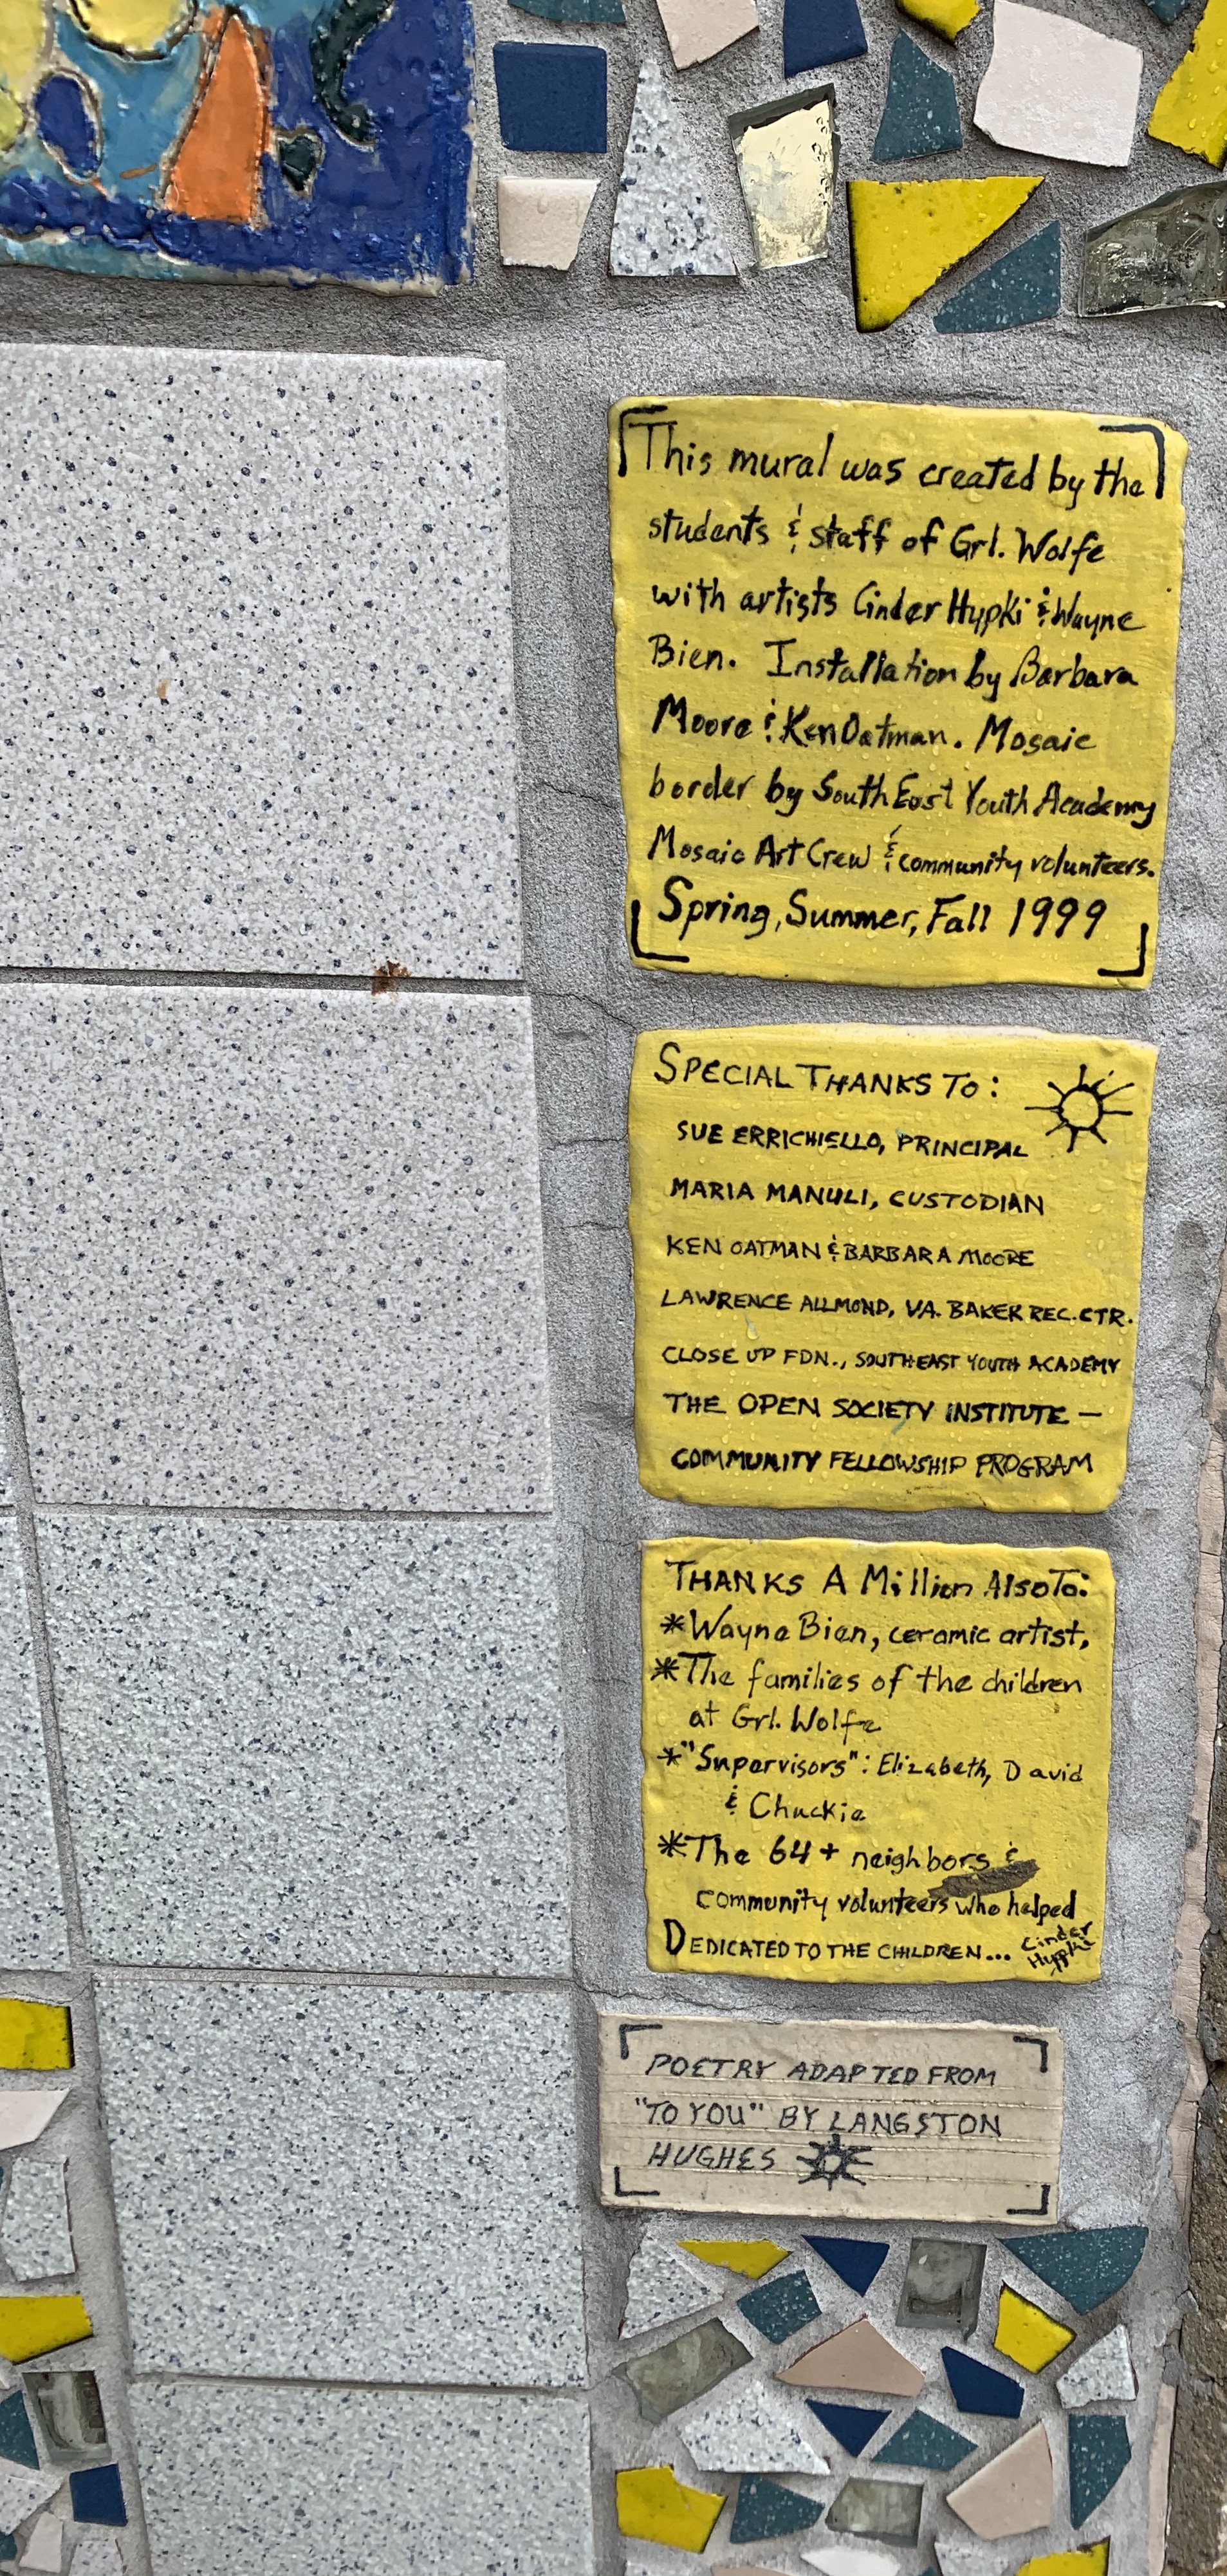 This mural was created by the
students & staff of Grl. Wolfe
with artists Cinder Hypki & Wayne
Bien. Installation by Barbara
Moore & Ken Oatman. Mosaic
border by SouthEast Youth Academy
Mosaic Art Crew & community volunteers.
Spring, Summer, Fall 1999
SPECIAL THANKS TO:
SUE ERRICHIELLO, PRINCIPAL
MARIA MANULI, CUSTODIAN
KEN OATMAN & BARBARA MOORE
LAWRENCE ALLMOND, VA. BAKER REC. CTR.
CLOSE UP FDN., SOUTHEAST YOUTH ACADEMY
THE OPEN SOCIETY INSTITUTE —
COMMUNITY FELLOWSHIP PROGRAM
THANKS A Million Also To:
*Wayne Bien, ceramic artist,
*The families of the children
at Grl. Wolfe
*"Supervisors": Elizabeth, David
& Chuckie
*The 64+ neighbors &
community volunteers who helped
DEDICATED TO THE CHILDREN... Cinder
Hypki
POETRY ADAPTED FROM
"TO YOU" BY LANGSTON
HUGHES